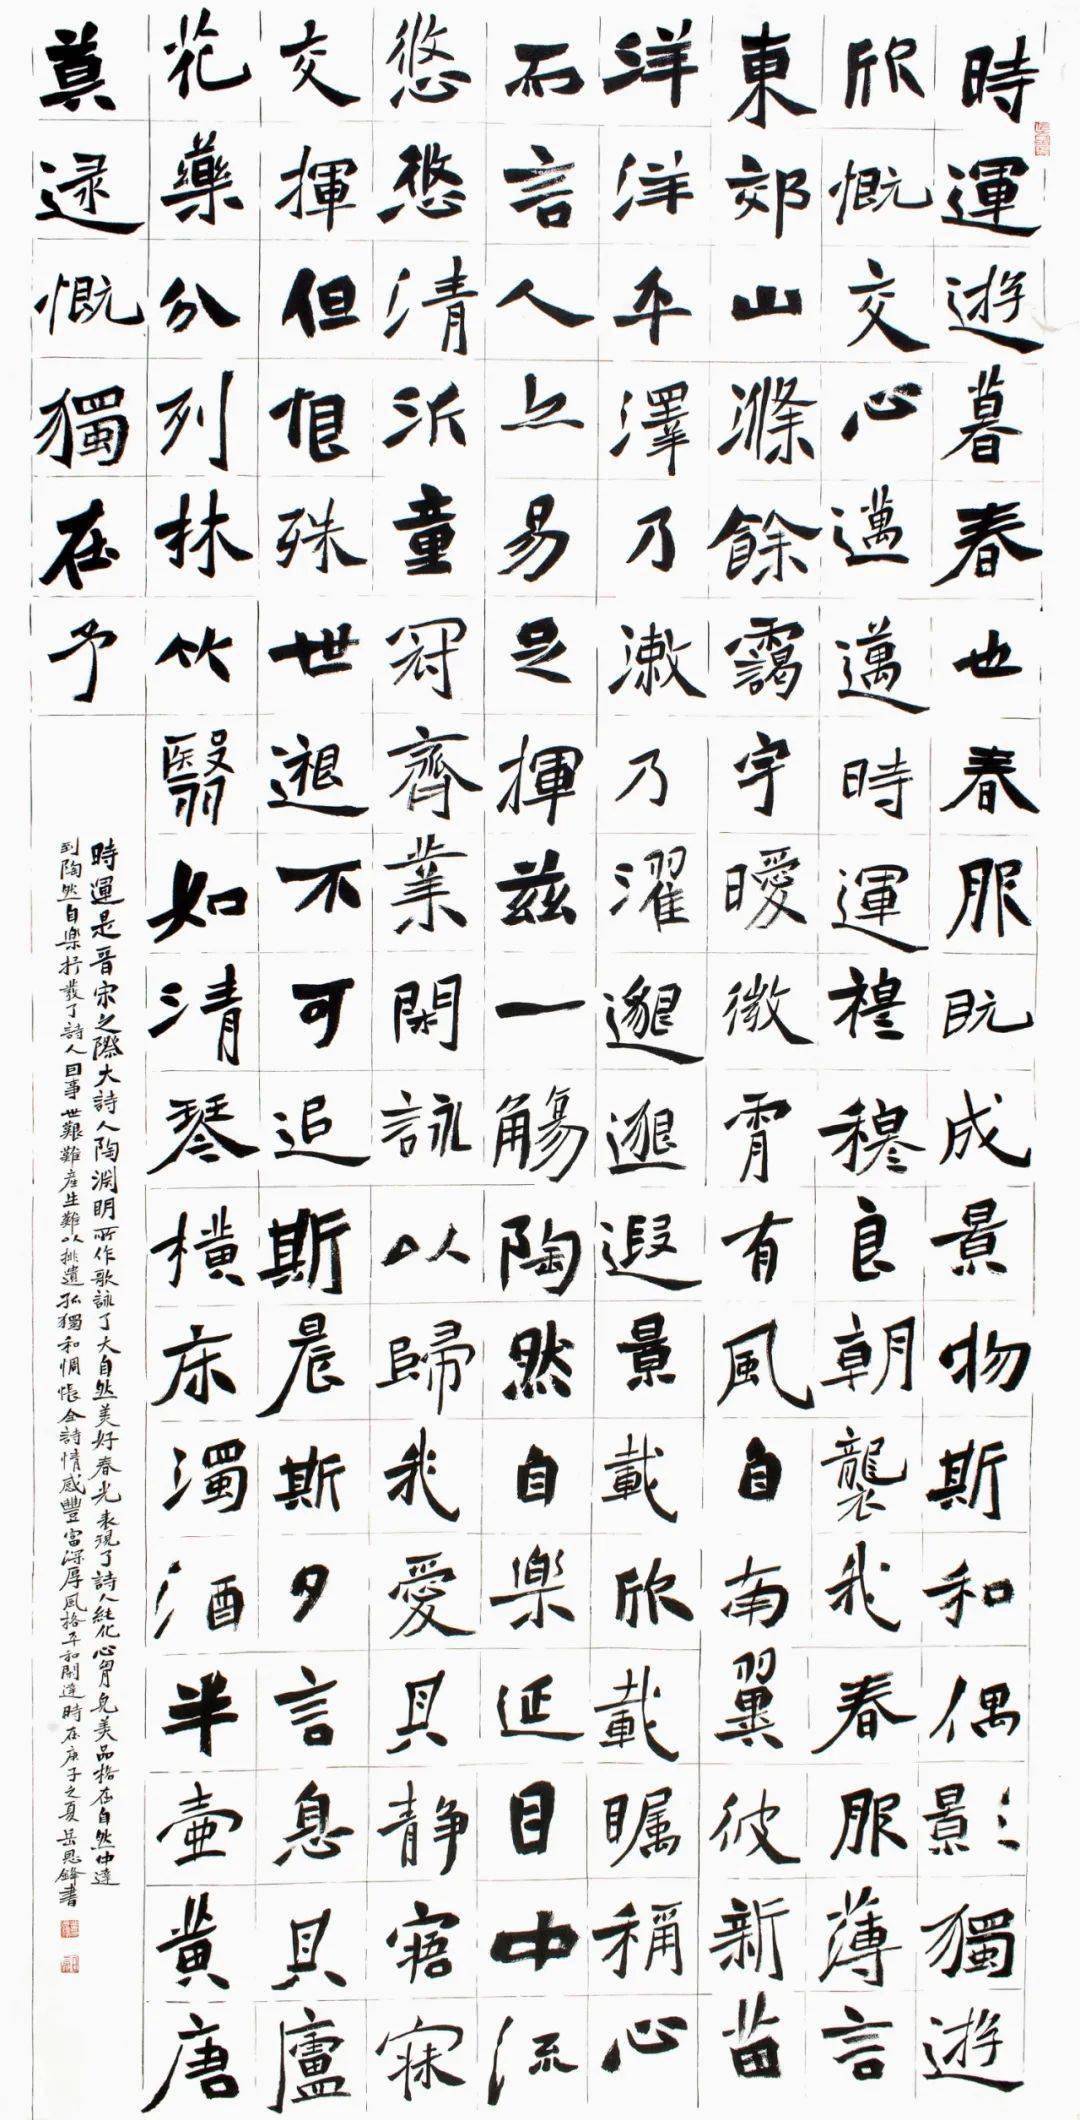 時運遊暮春也春服既成景物斯和偶影獨遊
欣慨交心邁邁時運穆穆良朝襲我春服薄言
東郊山滌餘靄宇曖微霄有風自南翼彼新苗
洋洋平澤乃漱乃濯邈邈遐景載欣載矚稱心
而言人亦易足揮茲一觴陶然自樂延目中流
悠悠清沂童冠齊業閑詠以歸我愛其靜寤寐
交揮但恨殊世邈不可追斯晨斯夕言息其廬
花藥分列林竹翳如清琴橫床濁酒半壺黃唐
莫逮慨獨在予
時運是晉宋之際大詩人陶淵明所作歌詠了大自然美好春光表現了詩人純化心胷見美品格在自然中達
到陶然自樂抒發了詩人因事世艱難產生難以排遣孤獨和惆悵全詩情感豐富深厚風格平和開達時在庚子之夏岳恩鋒書